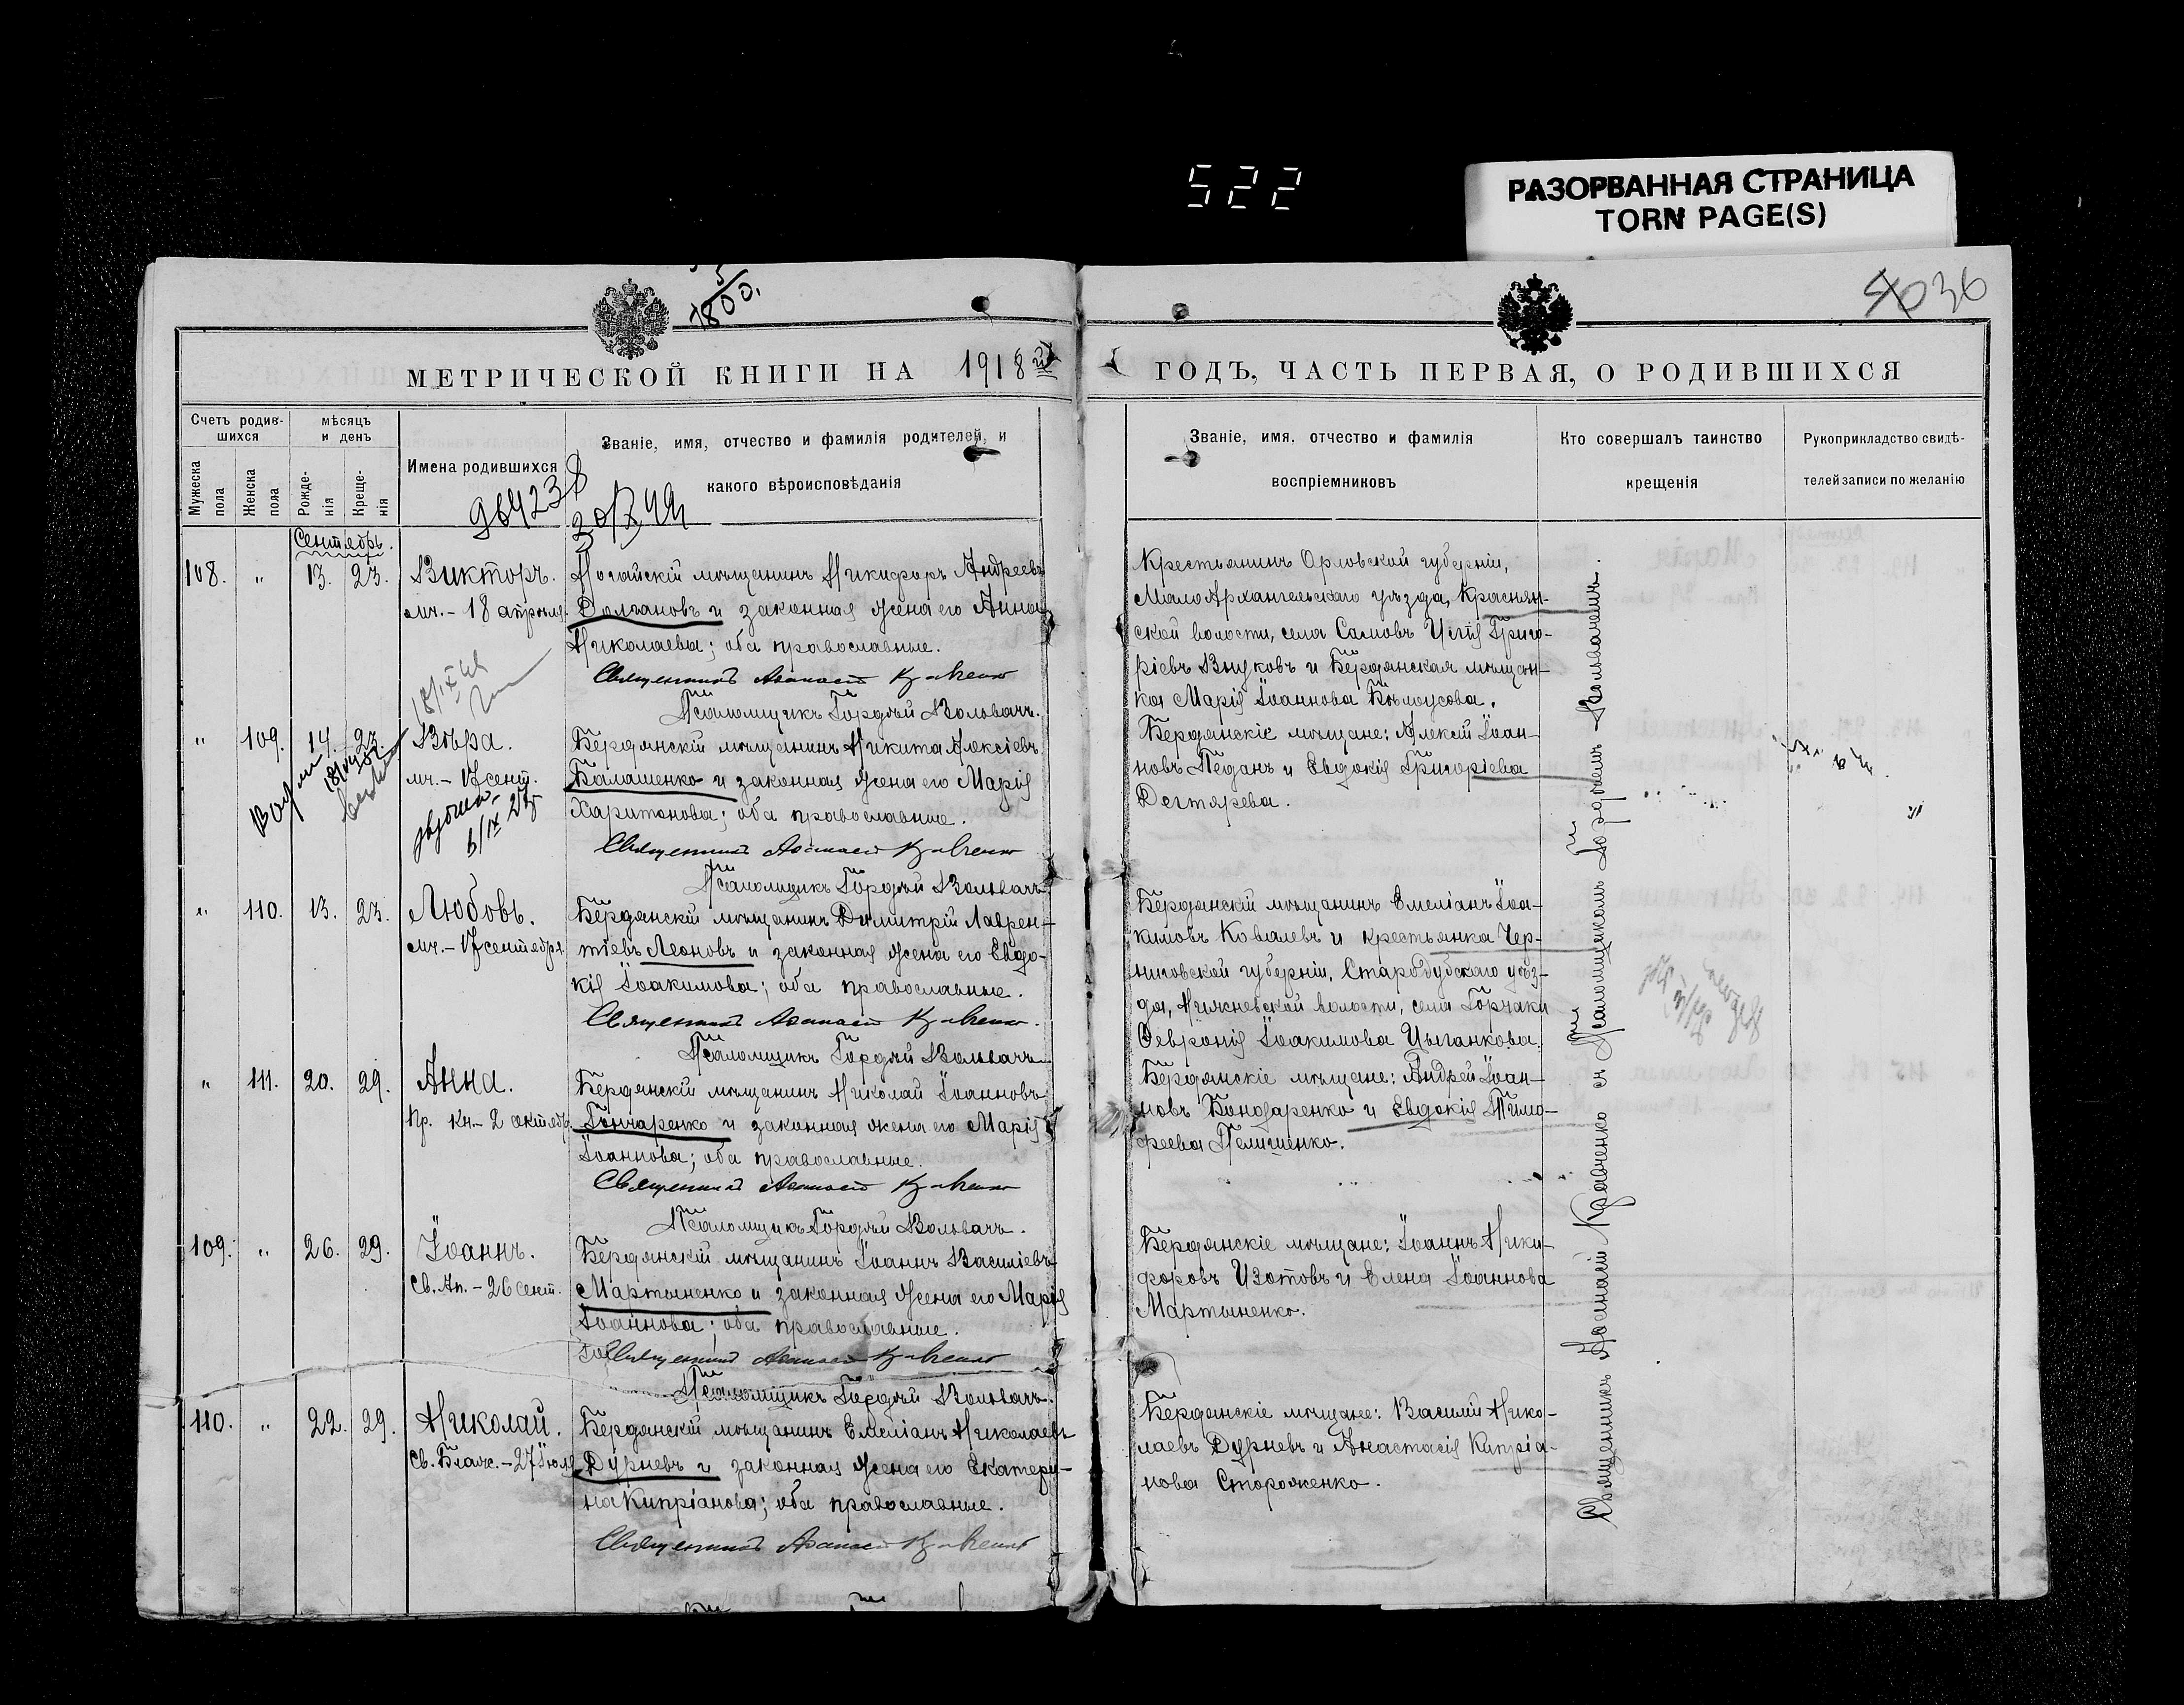 522
РАЗОРВАННАЯ СТРАНИЦА
TORN PAGE(S)
5/1800.
36
МЕТРИЧЕСКОЙ КНИГИ НА 1918й ГОДЪ, ЧАСТЬ ПЕРВАЯ, О РОДИВШИХСЯ
Счетъ родив-
шихся
Мужеска пола
Женска пола
мѣсяцъ
и день
Рожде-
нія
Креще-
нія
Имена родившихся
Званіе, имя, отчество и фамилія родителей, и
какого вѣроисповѣданія
Званіе, имя. отчество и фамилія
воспріемниковъ
Кто совершалъ таинство
крещенія
Рукоприкладство свидѣ-
телей записи по желанію
Сентябрь.
108. „ 13. 23. Викторъ.
мч. - 18 апрѣля.
Ногайскій мѣщанинъ Никифоръ Андреевъ
Долгановъ и законная жена его Анна
Николаева; оба православные.
Священникъ Афанасій Кравченко
Псаломщикъ Гордѣй Вольвачъ.
Крестьянинъ Орловской губерніи,
Мало Архангельскаго уѣзда, Краснян-
ской волости, села Самовъ Григо-
ріевъ Внуковъ и Бердянская мѣщан-
ка Марія Іоаннова Бѣлоусова.
„ 109. 14. 23. Вѣра.
мч. - 17 сент.
Бердянскій мѣщанинъ Никита Алексіевъ
Балашенко и законная жена его Марія
Харитонова; оба православные.
Священникъ Афанасій Кравченко
Псаломщикъ Гордѣй Вольвачъ
Бердянскіе мѣщане: Алексій Іоан-
новъ Педанъ и Евдокія Григоріева
Дегтярева.
„ 110. 13. 23. Любовь.
мч. - 17 сентября
Бердянскій мѣщанинъ Димитрій Лаврен-
тіевъ Леоновъ и законная жена его Евдо-
кія Іоакимова; оба православные.
Священникъ Афанасій Кравченко.
Псаломщикъ Гордѣй Вольвачъ
Бердянскій мѣщанинъ Емеліанъ Іоа-
кимовъ Ковалевъ и крестьянка Чер-
ниговской губерніи, Стародубскаго уѣз-
да, волости, села Горчаки
Февронія Іоакимова Цыганкова.
„ 111. 20. 29. Анна.
Пр. Кн. - 2 октяб.
Бердянскій мѣщанинъ Николай Іоанновъ
Гончаренко и законная жена его Марія
Іоаннова; оба православные.
Священникъ Афанасій Кравченко
Псаломщикъ Гордѣй Вольвачъ.
Бердянскіе мѣщане: Андрей Іоан-
новъ Бондаренко и Евдокія Тимо-
феева Пелишенко.
109. „ 26. 29. Іоаннъ.
Св. Ап. - 26 сент.
Бердянскій мѣщанинъ Іоаннъ Василіевъ
Мартыненко и законная жена его Марія
Іоаннова; оба православные.
Священникъ Афанасій Кравченко
Псаломщикъ Гордѣй Вольвачъ.
Бердянскіе мѣщане: Іоаннъ Ники-
форовъ Изотовъ и Елена Іоаннова
Мартыненко.
110. „ 22. 29. Николай.
Св. Блаж. - 27 Іюля
Бердянскій мѣщанинъ Емеліанъ Николаевъ
Дурневъ и законная жена его Екатери-
на Кипріанова; оба православные.
Священникъ Афанасій Кравченко
Бердянскіе мѣщане: Василій Нико-
лаевъ Дурневъ и Анастасія Кипріа-
нова Стороженко.
Священникъ Афанасій Кравченко съ Псаломщикомъ Гордѣемъ Вольвачемъ.